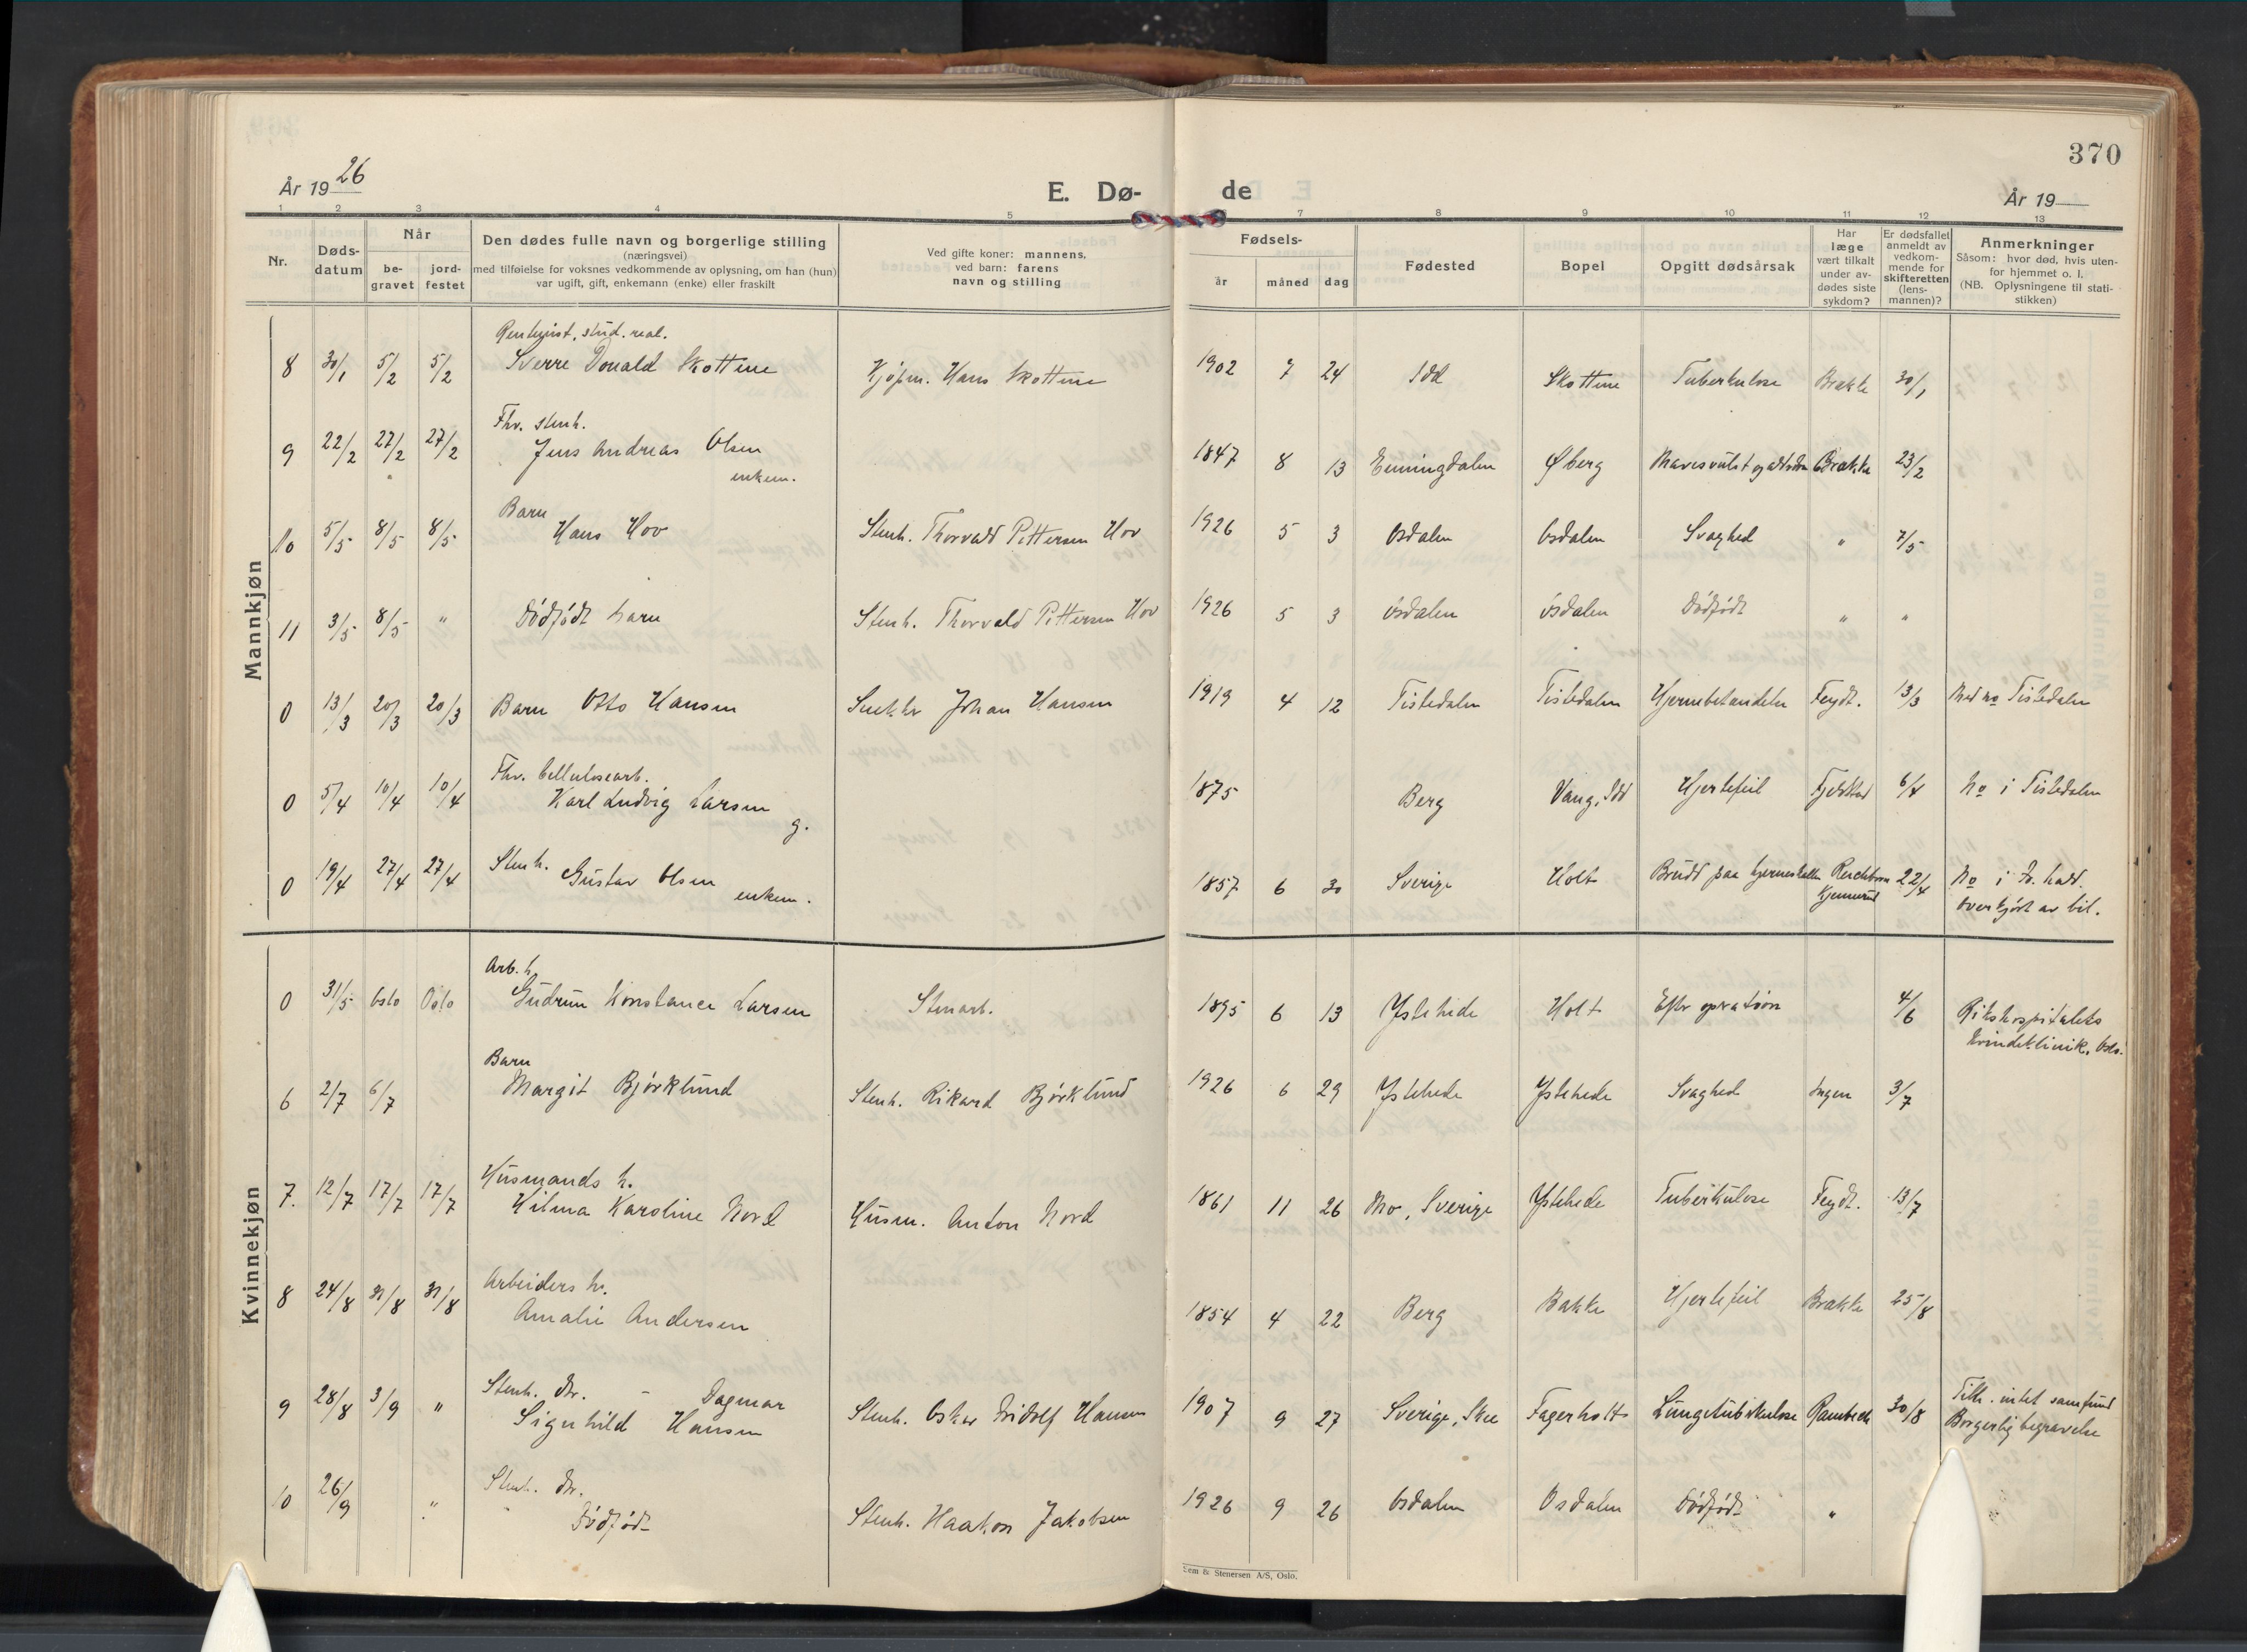 370
År 1926
E. Dø-
de
År 19
1 2 3 4 5 7 8 9 10 11 12 13
Nr.
Døds-
datum
Når
be-
gravet
jord-
festet
Den dødes fulle navn og borgerlige stilling
(næringsvei)
med tilføielse for voksnes vedkommende av oplysning, om han (hun)
var ugift, gift, enkemann (enke) eller fraskilt
Ved gifte koner: mannens,
ved barn: farens
navn og stilling
Fødsels-
år måned dag
Fødested
Bopel
Opgitt dødsårsak
Har
læge
vært tilkalt
under av-
dødes siste
sykdom?
Er dødsfallet
anmeldt av
vedkom-
mende for
skifteretten
(lens-
mannen)?
Anmerkninger
Såsom: hvor død, hvis uten-
for hjemmet o. l.
(NB. Oplysningene til stati-
stikken)
Mannkjøn
stud. real.
8 30/1 5/2 5/2 Sverre Donald Skottene Kjøpm. Hans Skottene 1902 7 24 Idd Skottene Tuberkulose Brække 30/1
Fhv. stenh.
9 22/2 27/2 27/2 Jens Andreas Olsen 1847 8 13 Enningdalen Øberg Brække 23/2
enkem.
Barn
10 5/5 8/5 8/5 Hans Hov Stenh. Thorvald Pettersen Hov 1926 5 3 Osdalen Osdalen Svaghed " 7/5
11 3/5 8/5 " Dödfödt barn Stenh. Thorvald Pettersen Hov 1926 5 3 Ósdalen Ósdalen Dödfödt " "
0 13/3 20/3 20/3 Barn Otto Hansen Johan Hansen 1919 4 12 Tistedalen Tistedalen Hjernebetændelse Feydt. 13/3 Med no Tistedalen
Fhv. Cellulosearb.
0 5/4 10/4 10/4 Karl Ludvig Larsen 1875 Berg Vang, Idd Hjertefeil Fjeldstad 6/4 No i Tistedalen
g.
Stenh.
0 19/4 27/4 27/4 Gustav Olsen 1857 6 30 Sverige Holt Brudd paa hjerneskallen 22/4 No i Fr. hald.
enkem. overkjört av bil.
Kvinnekjøn
Arb. h.
0 31/5 Oslo Oslo Gudrun Konstance Larsen Stenarb. 1895 6 13 Ystehede Holt Eftr opration 4/6 Rikshospitalets
Kvindeklinik, Oslo.
Barn
6 2/7 6/7 Margit Björklund Stenh. Rikard Björklund 1926 6 29 Ystehede Ystehede Svaghed Ingen 3/7
Husmands h.
7. 12/7 17/7 17/7 Hilma Karoline Nord Husm. Anton Nord 1861 11 26 Mo, Sverige Ystehede Tuberkulose Feydt. 13/7
Arbeiders h.
8 24/8 31/8 31/8 Amalie Andersen 1854 4 22 Berg Bakke Hjertefeil Brække 25/8
Stenh. dtr. - Dagmar
9 28/8 3/9 " Signhild Hansen Stenh. Oskar Fridolf Hansen 1907 9 27 Sverige, Skee Fagerholt Lungetuberkulose Rambech 30/8 Tilh. intet samfund
Borgerlig begravelse
Stenh. dtr.
10 26/9 " Dödfödt Stenh. Haakon Jakobsen 1926 9 26 Osdalen Osdalen Dödfödt "
Sem & Stenersen A/S, Oslo.